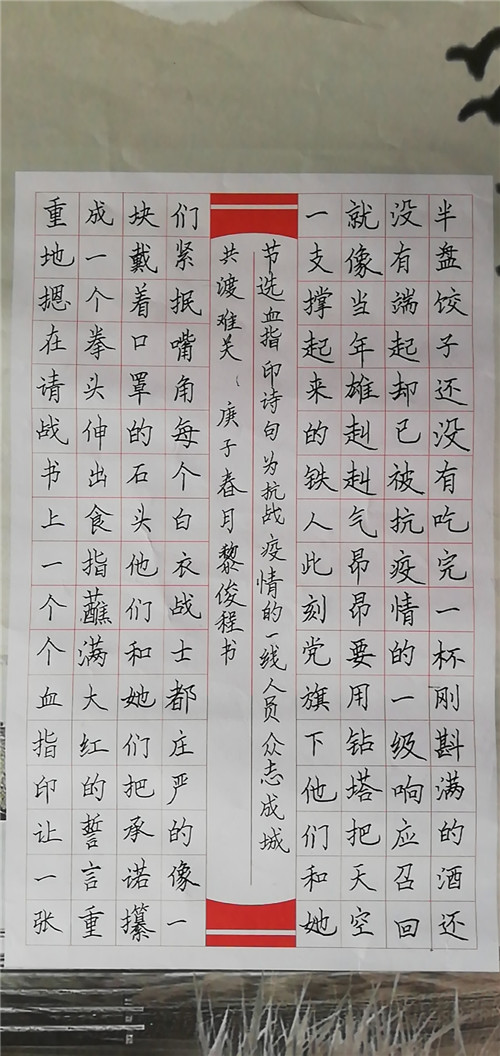 半盘饺子还没有吃完一杯刚斟满的酒还
没有端起却已被抗疫情的一级响应召回
就像当年雄赳赳气昂昂要用钻塔把天空
一支撑起来的铁人此刻党旗下他们和她
节选血指印诗句为抗战疫情的一线人员众志成城
共渡难关、庚子春月黎俊程书
们紧抿嘴角每个白衣战士都庄严的像一
块戴着口罩的石头他们和她们把承诺攥
成一个拳头伸出食指蘸满大红的誓言重
重地摁在请战书上一个个血指印让一张